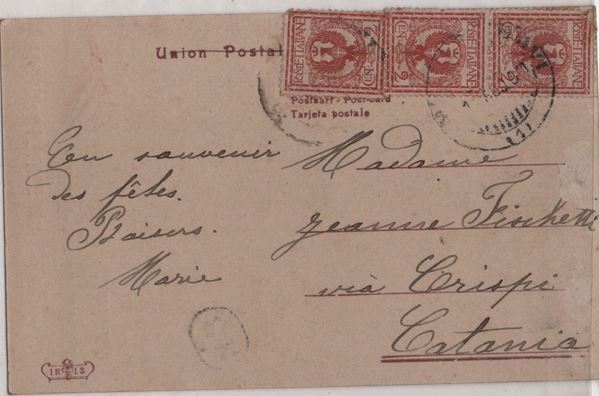 Union Postal
POSTE ITALIANE
CEN 2
POSTE ITALIANE
CEN 2
POSTE ITALIANE
Postkart - Post-card
Tarjeta postale
En souvenir
des fêtes.
Baisers.
Marie
Madame
Jeanne Fischetti
via Crispi
Catania